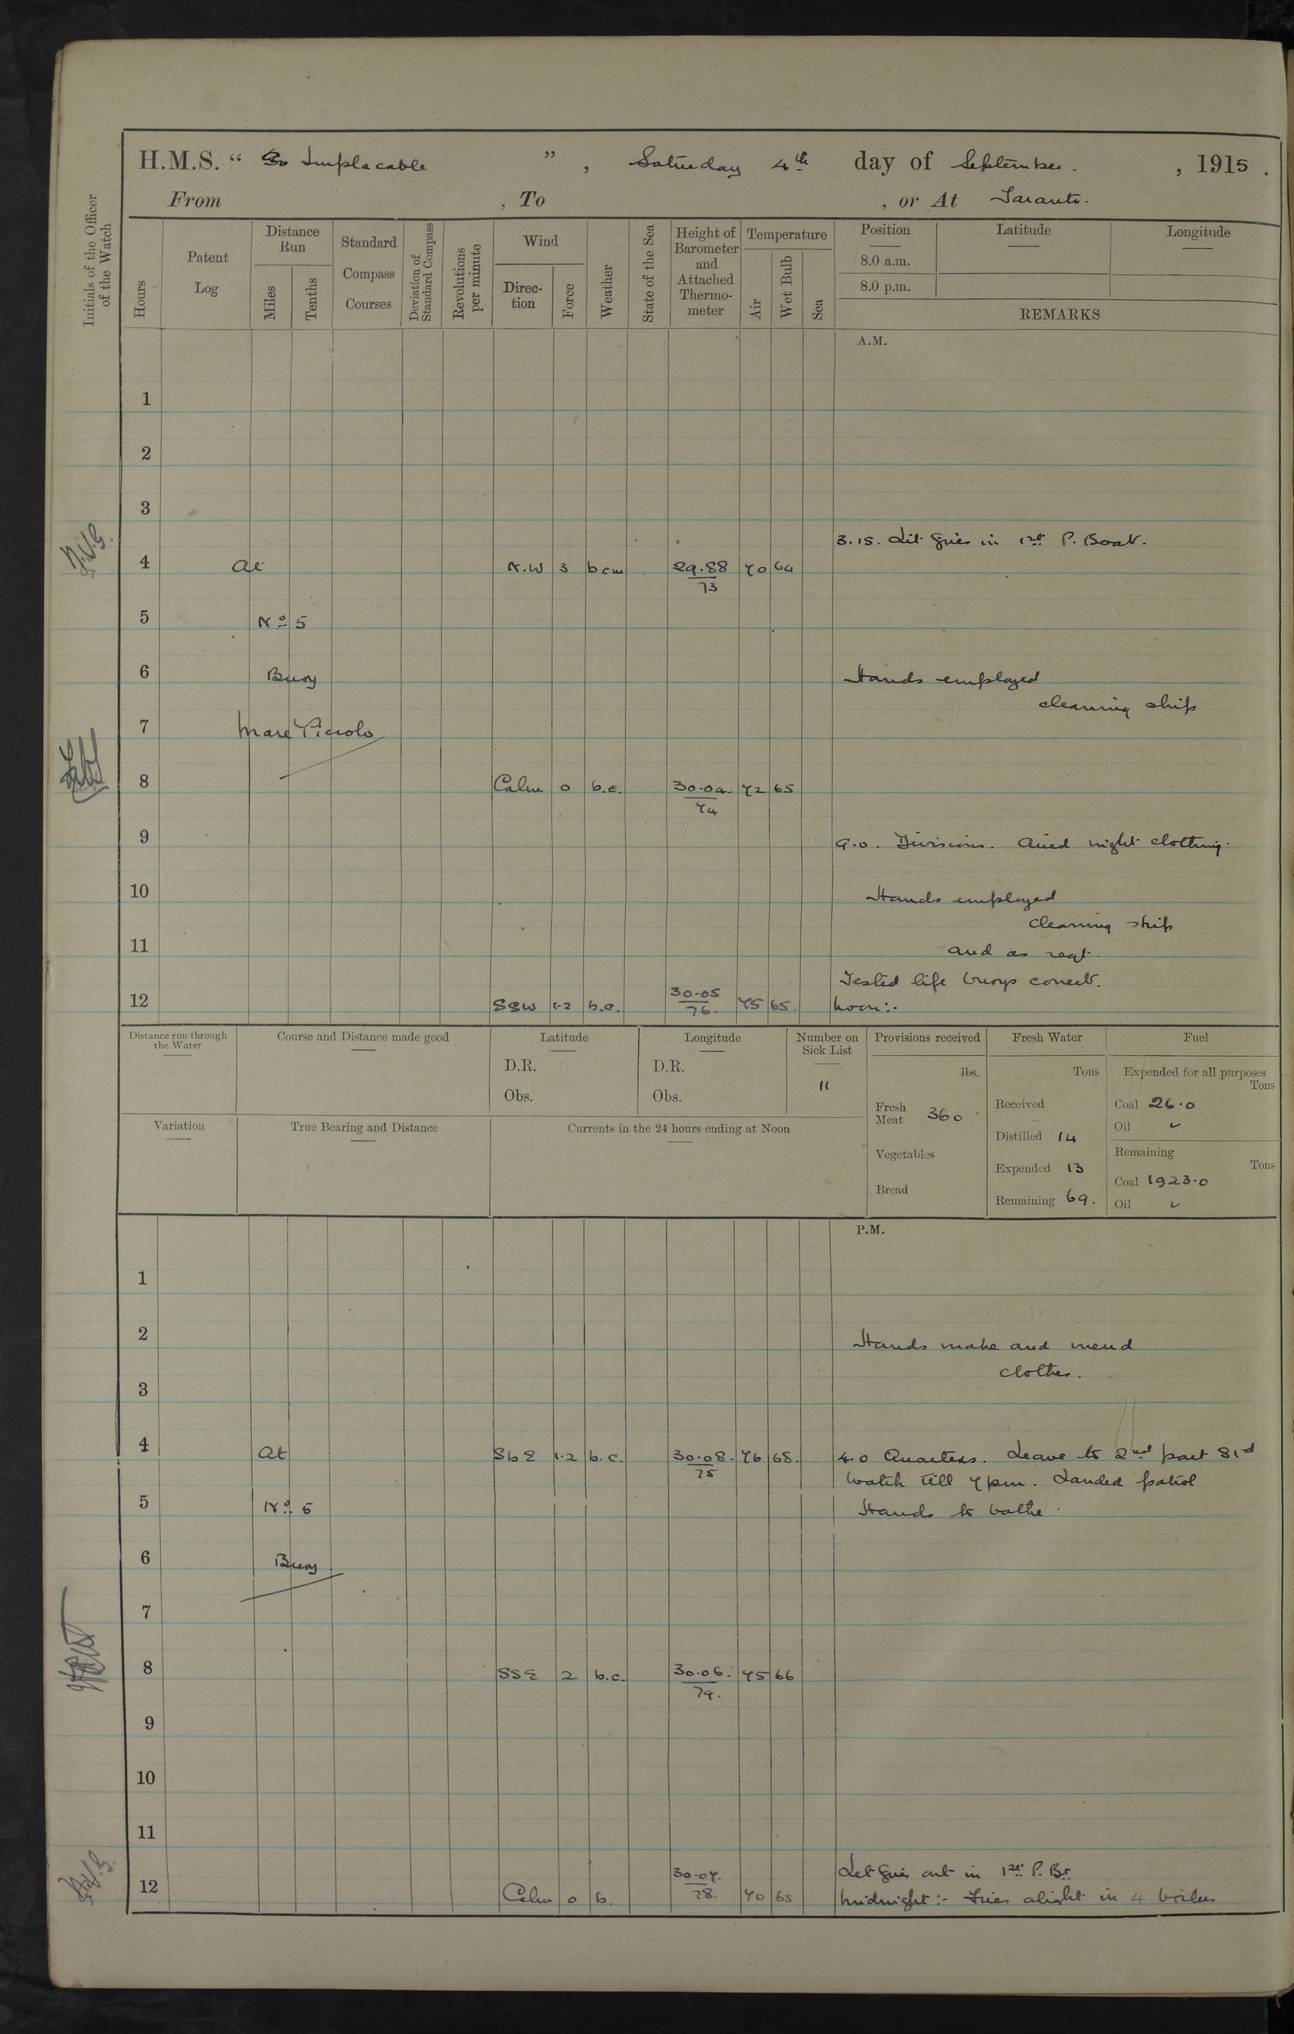 H.M.S. " Implacable ", Saturday 4th day of September, 1915.
From , To , or At Taranto.
Initials of the Officer of the Watch
Hours
Patent Log
Distance Run
Miles
Tenths
Standard Compass Courses
Deviation of Standard Compass
Revolutions per minute
Wind
Direction
Force
Weather
State of the Sea
Height of Barometer and Attached Thermometer
Temperature
Air
Wet Bulb
Sea
Position
8.0 a.m.
8.0 p.m.
Latitude
Longitude
REMARKS
A.M.
1
2
3
3.15. Lit fires in 1st P. Boat.
4 At N.W 3 bcm 29.88/73 70 64
5 No 5
6 Buoy Hands employed
cleaning ship
7 Mare Piccolo
8 Calm 0 b.c. 30.04/74 72 65
9 9.0. Divisions. Aired night clothing.
10 Hands employed
cleaning ship
11 and as reqt.
Tested life buoys correct.
12 SSW 1-2 b.c. 30.05/76. 75 65. Noon:-
Distance run through the Water
Course and Distance made good
Latitude
D.R.
Obs.
Longitude
D.R.
Obs.
Number on Sick List
11
Provisions received
lbs.
Fresh Meat 360
Vegetables
Bread
Fresh Water
Tons
Received
Distilled 14
Expended 13
Remaining 69.
Fuel
Expended for all purposes
Tons
Coal 26.0
Oil
Remaining
Tons
Coal 1923.0
Oil
Variation
True Bearing and Distance
Currents in the 24 hours ending at Noon
P.M.
1
2 Hands make and mend
clothes.
3
4 At SbE 1-2 b.c. 30.08./75 76 68. 4.0 Quarters. Leave to 2nd part
watch till 7pm. Landed patrol
5 No 5 Hands to bathe.
6 Buoy
7
8 SSE 2 b.c. 30.06./79. 75 66
9
10
11
Let fires out in 1st P. Bt.
12 Calm 0 b. 30.07./78. 70 65 Midnight:- Fires alight in 4 boilers